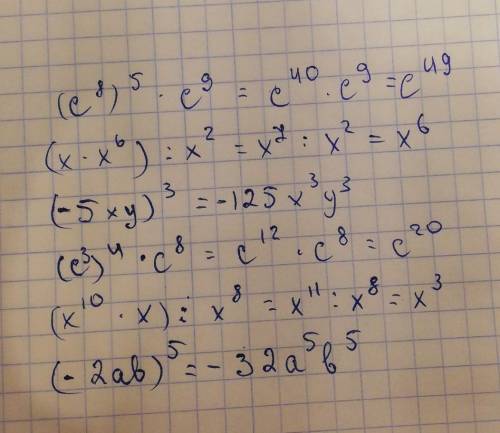 (c⁸)⁵ · c⁹ = c⁴⁰ · c⁹ = c⁴⁹
(x · x⁶) : x² = x⁷ : x² = x⁶
(-5xy)³ = -125x³y³
(c³)⁴ · c⁸ = c¹² · c⁸ = c²⁰
(x¹⁰ · x) : x⁸ = x¹¹ : x⁸ = x³
(-2ab)⁵ = -32a⁵b⁵